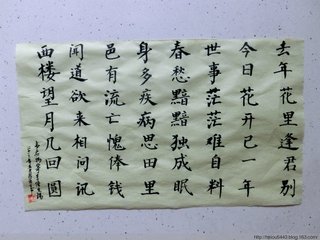 去年花里逢君别
今日花开已一年
世事茫茫难自料
春愁黯黯独成眠
身多疾病思田里
邑有流亡愧俸钱
闻道欲来相问讯
西楼望月几回圆
http://hslou5443.blog.163.com/